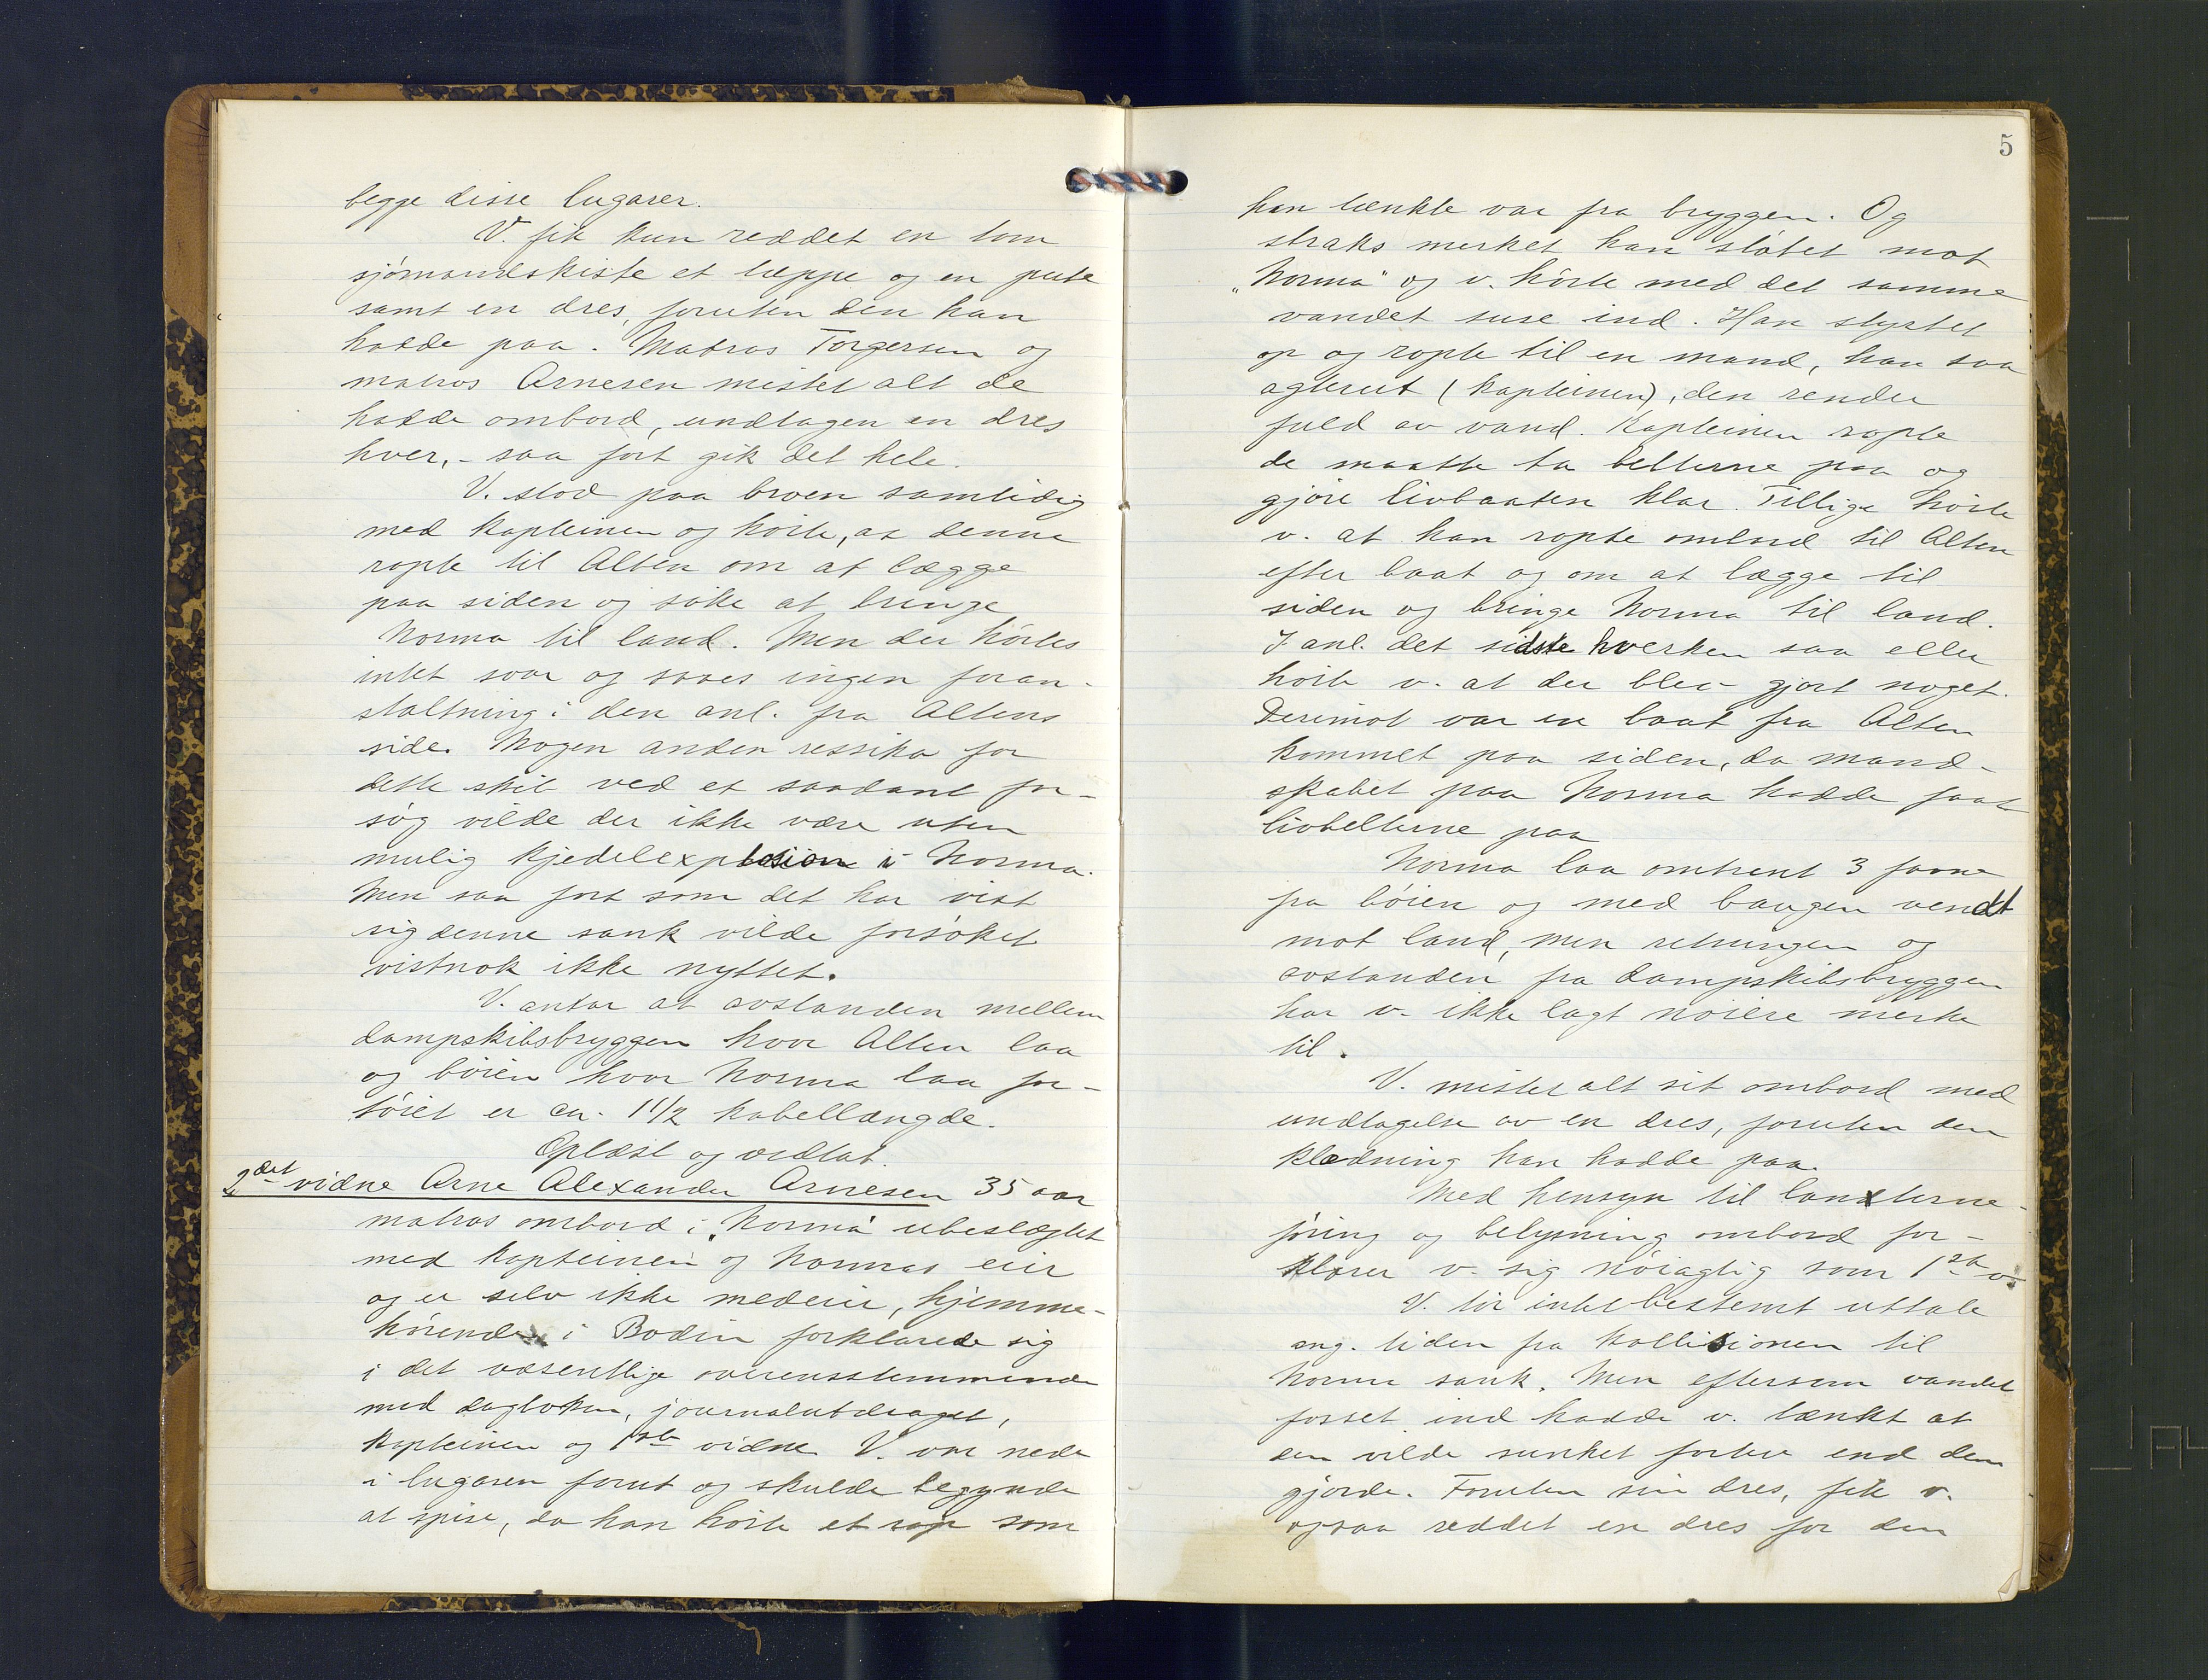 begge disse lugarer.
V. fik kun reddet en tom
sjömandskiste et tæppe og en pute
samt en dres, foruten den han
hadde paa. Matros Torgersen og
matros Arnesen mistet alt de
hadde ombord, undtagen en dres
hver, - saa fort gik det hele.
V. stod paa broen samtidig
med kapteinen og hörte, at denne
ropte til Alten om at lægge
paa siden og söke at bringe
Norma til land. Men der hörtes
intet svar og saaes ingen foran-
staltning i den anl. fra Altens
side. Nogen anden ressiko for
dette skib ved et saadant for-
søg vilde der ikke være uten
mulig kjedelexplosion i Norma.
Men saa fort som det har vist
sig denne sank vilde forsöket
vistnok ikke nyttet.
V. antar at avstanden mellem
dampskibsbryggen hvor Alten laa
og böien hvor Norma laa for-
töiet er ca. 1 1/2 kabellængde.
Oplæst og vedtat.
2det vidne Arne Alexander Arnesen 35 aar
matros ombord i „Norma" ubeslægtet
med kapteinen og Normas eier
og er selv ikke medeier, hjemme-
hörende i Bodin forklarede sig
i det væsentlige overensstemmende
med dagboken, journalutdraget,
kapteinen og 1ste vidne. V. var nede
i lugaren forut og skulde begynde
at spise, da han hörte et rop som
5
han tænkte var fra bryggen. Og
straks merket han stötet mot
„Norma" og v. hörte med det samme
vandet suse ind. Han styrtet
op og ropte til en mand, han saa
agterut (kapteinen), den render
fuld av vand. Kapteinen ropte
de maatte ta belterne paa og
gjöre livbaaten klar. Tillige hörte
v. at han ropte ombord til Alten
efter baat og om at lægge til
siden og bringe Norma til land.
I anl. det sidste hverken saa eller
hörte v. at der blev gjort noget.
Derimot var en baat fra Alten
kommet paa siden, da mand-
skabet paa Norma hadde faat
livbelterne paa
Norma laa omtrent 3 favne
fra böien og med baugen vendt
mot land, men retningen og
avstanden fra dampskibsbryggen
har v. ikke lagt nöiere merke
til.
V. mistet alt sit ombord med
undtagelse av en dres, foruten den
klædning han hadde paa.
Med hensyn til lanterne-
föring og belysning ombord for-
klarer v. sig nöiagtig som 1ste v.
V. tör intet bestemt uttale
ang. tiden fra kollisionen til
Norma sank. Men eftersom vandet
fosset ind hadde v. tænkt at
den vilde sunket fortere end den
gjorde. Foruten sin dres, fik v.
ogsaa reddet en dres for den